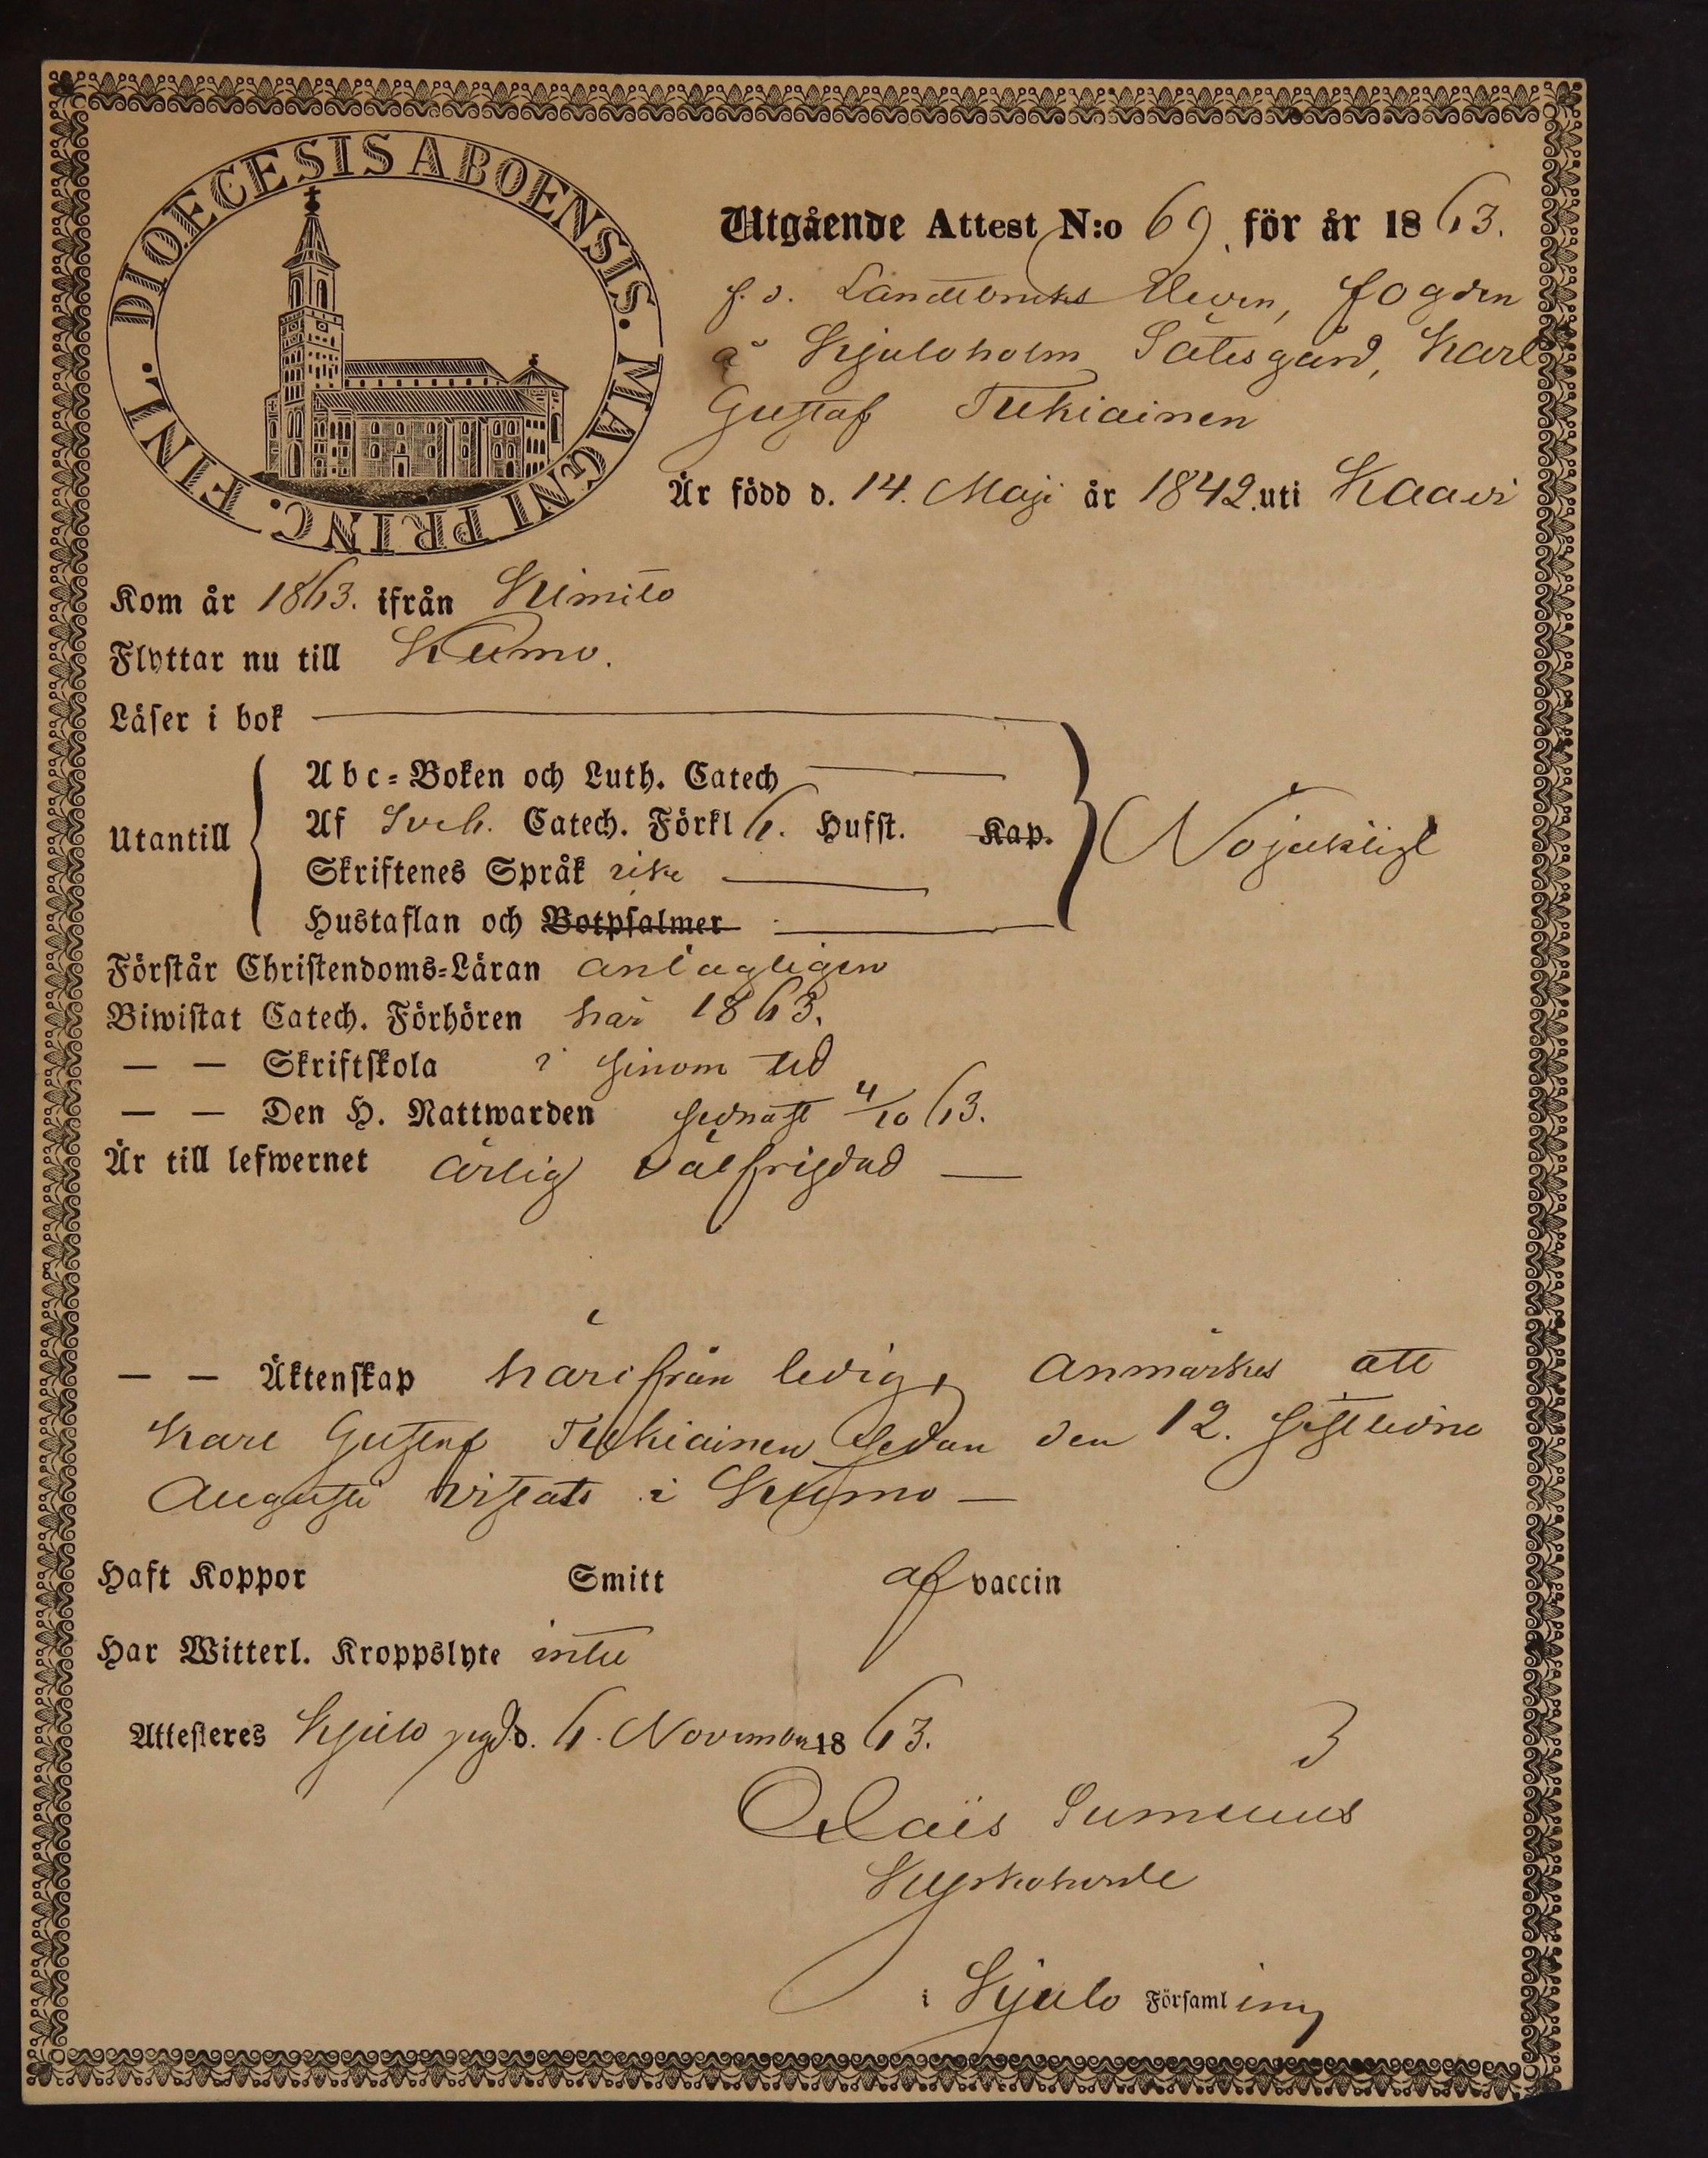 DIOECESIS ABOENSIS. MAGNI PRINC. FINL.
Utgående Attest N:o 69. för år 1863.
f. d. Landtbruks Eleven, fogden
å Kjuloholm Sätesgård, Karl
Gustaf Tukiainen
Är född d. 14. Maji år 1842. uti Kaavi
Kom år 1863. ifrån Kimito
Flyttar nu till Kumo.
Läser i bok
Abc-Boken och Luth. Catech
Utantill Af Sveb. Catech. Förkl 6. Hufst. Kap. Nöjaktigt
Skriftenes Språk icke
Hustaflan och Botpsalmer
Förstår Christendoms-Läran antagligen
Biwistat Catech. Förhören här 1863.
— — Skriftskola i sinom tid
— — Den H. Nattwarden sednast 4/10 63.
Är till lefwernet ärlig välfrigdad —
— — Äktenskap härifrån ledig, anmärkes att
Karl Gustaf Tukiainen sedan den 12. sistledne
Augusti vistats i Kumo —
Haft Koppor Smitt af vaccin
Har Witterl. Kroppslyte intet
Attesteres Kjulo d. 6. November 1863.
3
Kyrkoherde
i Kjulo Församling